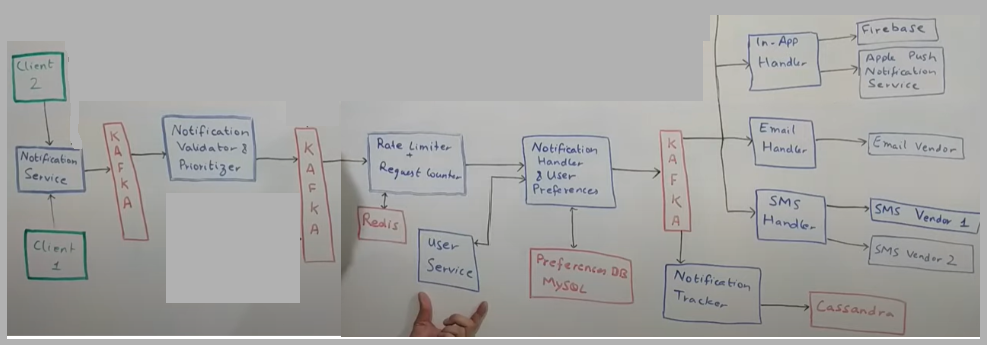 Client
2
Notification
Service
Client
1
KAFKA
Notification
Validator &
Prioritizer
KAFKA
Rate Limiter
+
Request Counter
Redis
User
Service
Notification
Handler
& User
Preferences
Preferences DB
MySQL
KAFKA
Notification
Tracker
Cassandra
In-App
Handler
Firebase
Apple Push
Notification
Service
Email
Handler
Email Vendor
SMS
Handler
SMS Vendor 1
SMS Vendor 2